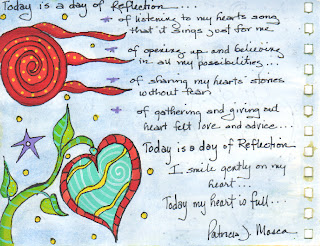 Today is a day of Reflection....
of listening to my hearts song
that it sings just for me
of opening up and believing
in all my possibilities...
of sharing my hearts' stories
without fear.
of gathering and giving out
heart felt love and advice...
Today is a day of Reflection
I smile gently on my
heart...
Today my heart is full...
Patricia J. Mosca